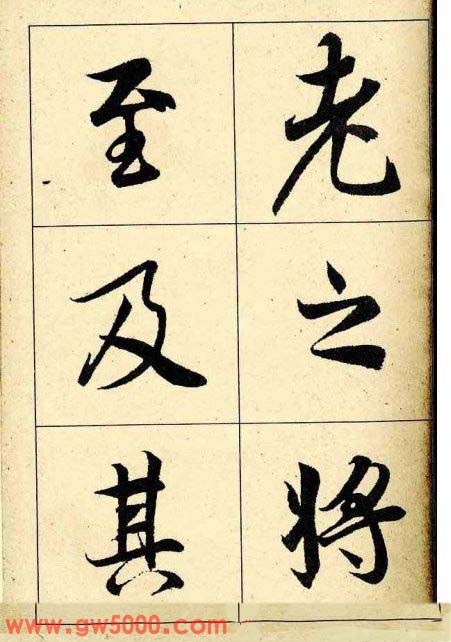 老之将
至及其
www.gw5000.com